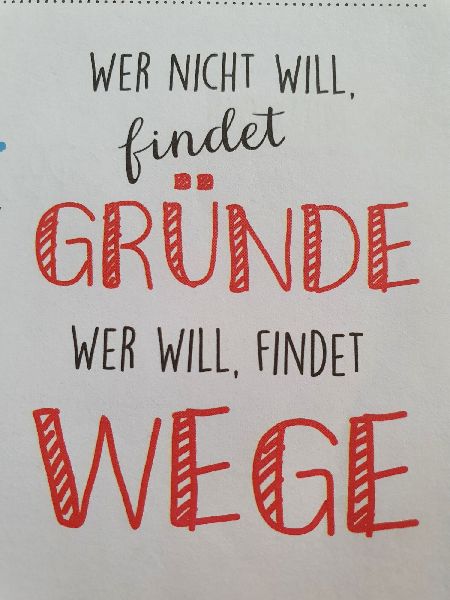 WER NICHT WILL,
findet
GRÜNDE
WER WILL, FINDET
WEGE